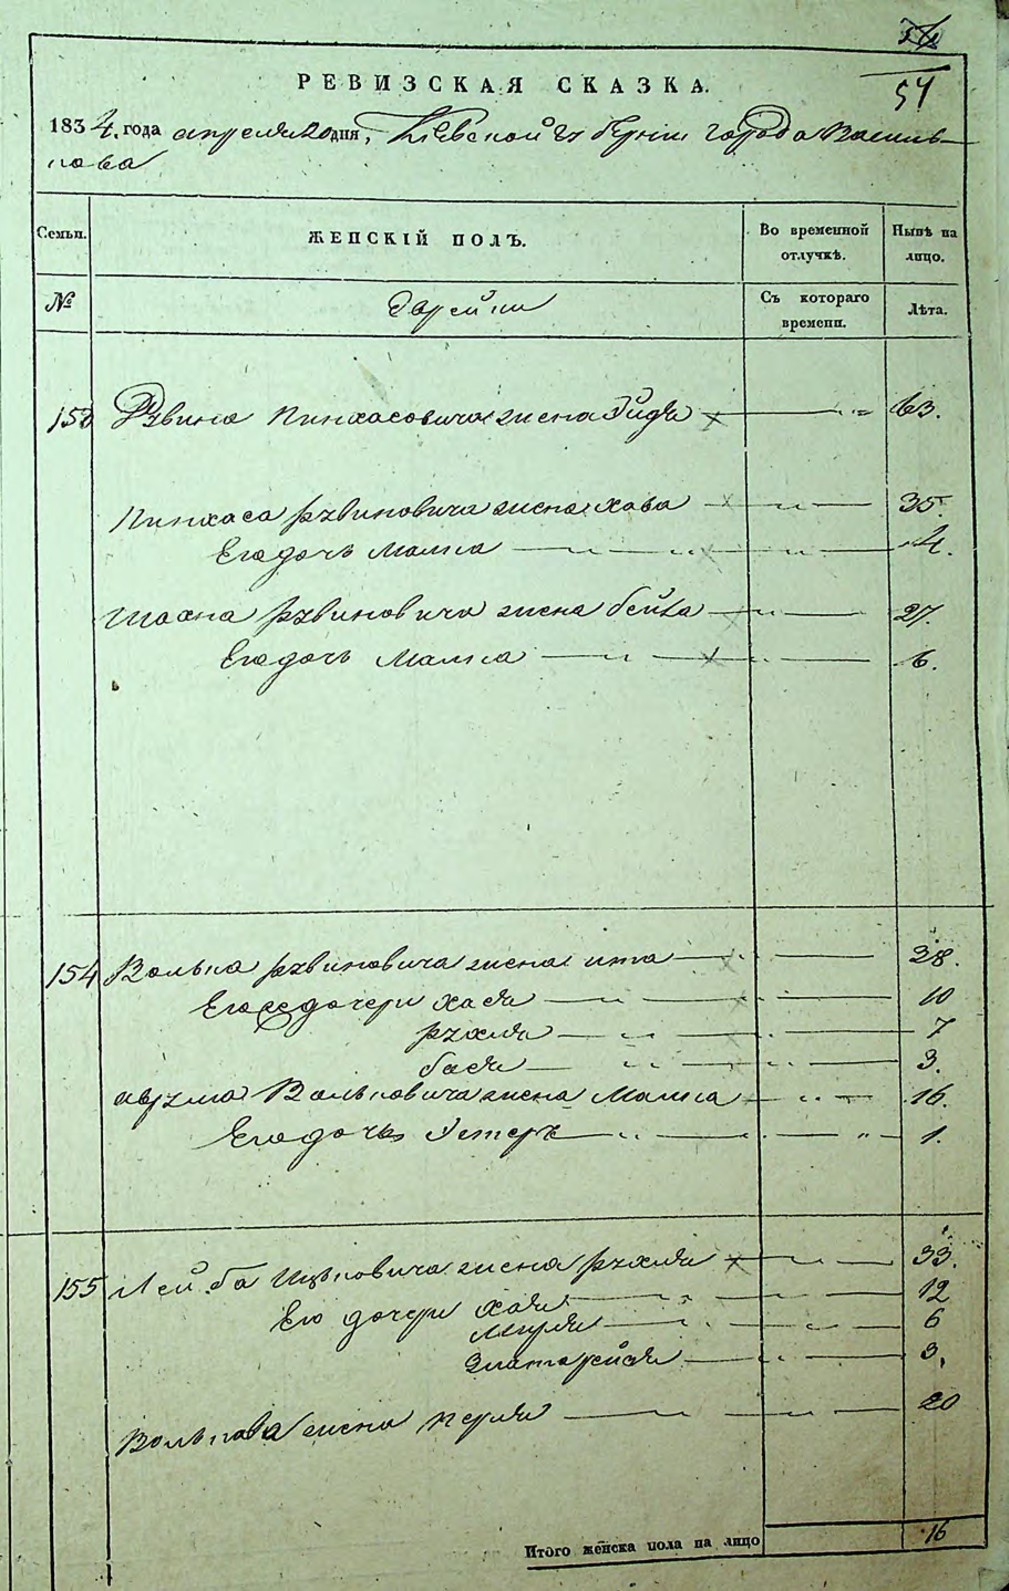 54
РЕВИЗСКАЯ СКАЗКА.
1834. года апреля 20 дня, Киевской губернии города Василь-
кова
Семьи. ЖЕНСКІЙ ПОЛЪ. Во временной отлучкѣ. Нынѣ на лицо.
№ Еврейки Съ котораго времени. Лѣта.
153 Рувина Пинхасовича жена Эйдя 63.
Пинхаса Рувиновича жена Хава 35.
Его дочь Малка 4.
Шахна Рувиновича жена Бейла 27.
Его дочь Малка 6.
154 Волька Рувиновича жена Ита 38.
Его дочери Хася 10
Рухля 7
Бася 3.
Аврума Вольковича жена Малка 16.
Его дочь Эстеръ 1.
155 Лейба Ицковича жена Рухля 33.
Его дочери Хая 12
Мирля 6
Златарейзя 3.
Волькова жена Перля 20
Итого женска пола на лицо 16